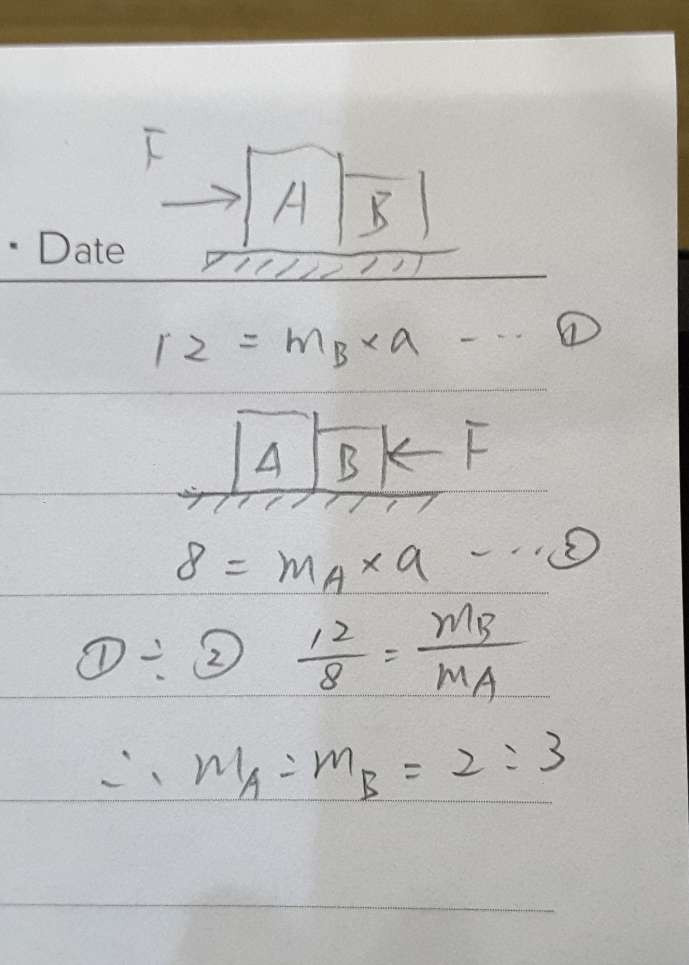 F
A B
· Date
12 = mB × a --- ①
A B F
8 = mA × a --- ②
① ÷ ② 12/8 = mB/mA
∴ mA : mB = 2 : 3